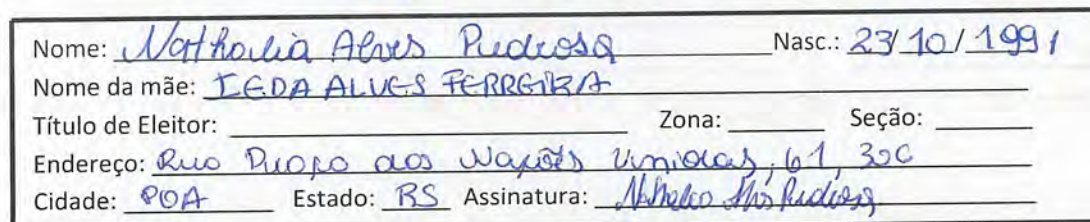 Nome: Nathalia Alves Pedrosa Nasc.: 23/10/1991
Nome da mãe: IEDA ALVES FERREIRA
Título de Eleitor: Zona: Seção:
Endereço: Rua das Nações Unidas, 61, 30C
Cidade: POA Estado: RS Assinatura: Nathalia Alves Pedrosa